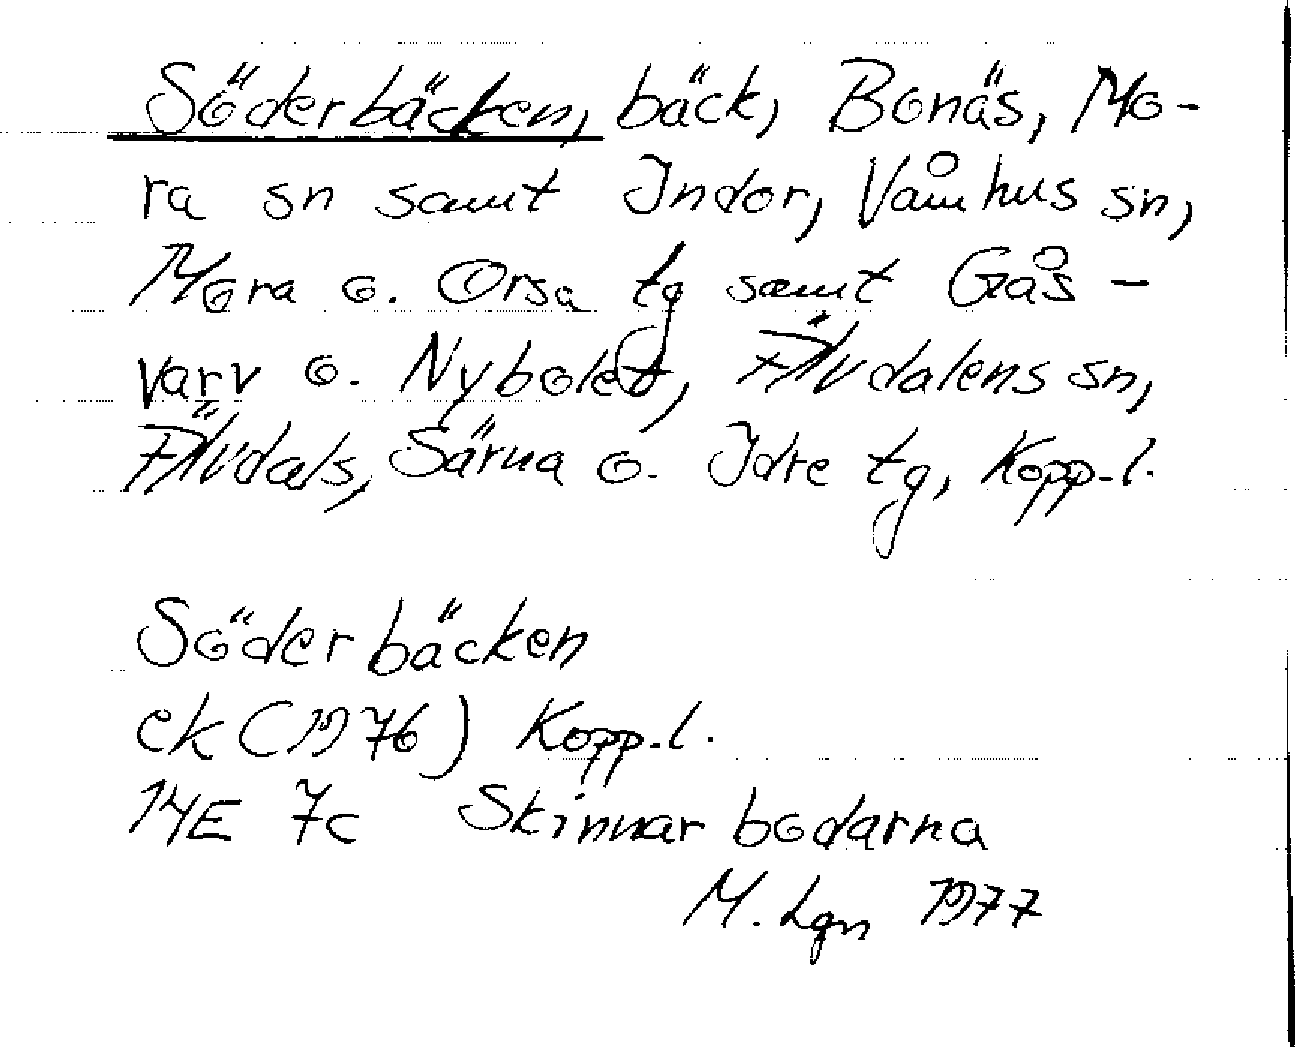 Söderbäcken, bäck, Bonäs, Mo-
ra sn samt Indor, Våmhus sn,
Mora o. Orsa tg samt Gås-
varv o. Nybolet, Älvdalens sn,
Älvdals, Särna o. Idre tg, Kopp.l.
Söderbäcken
ek (1976) Kopp.l.
14E 7c Skinnarbodarna
M. Lgn 1977